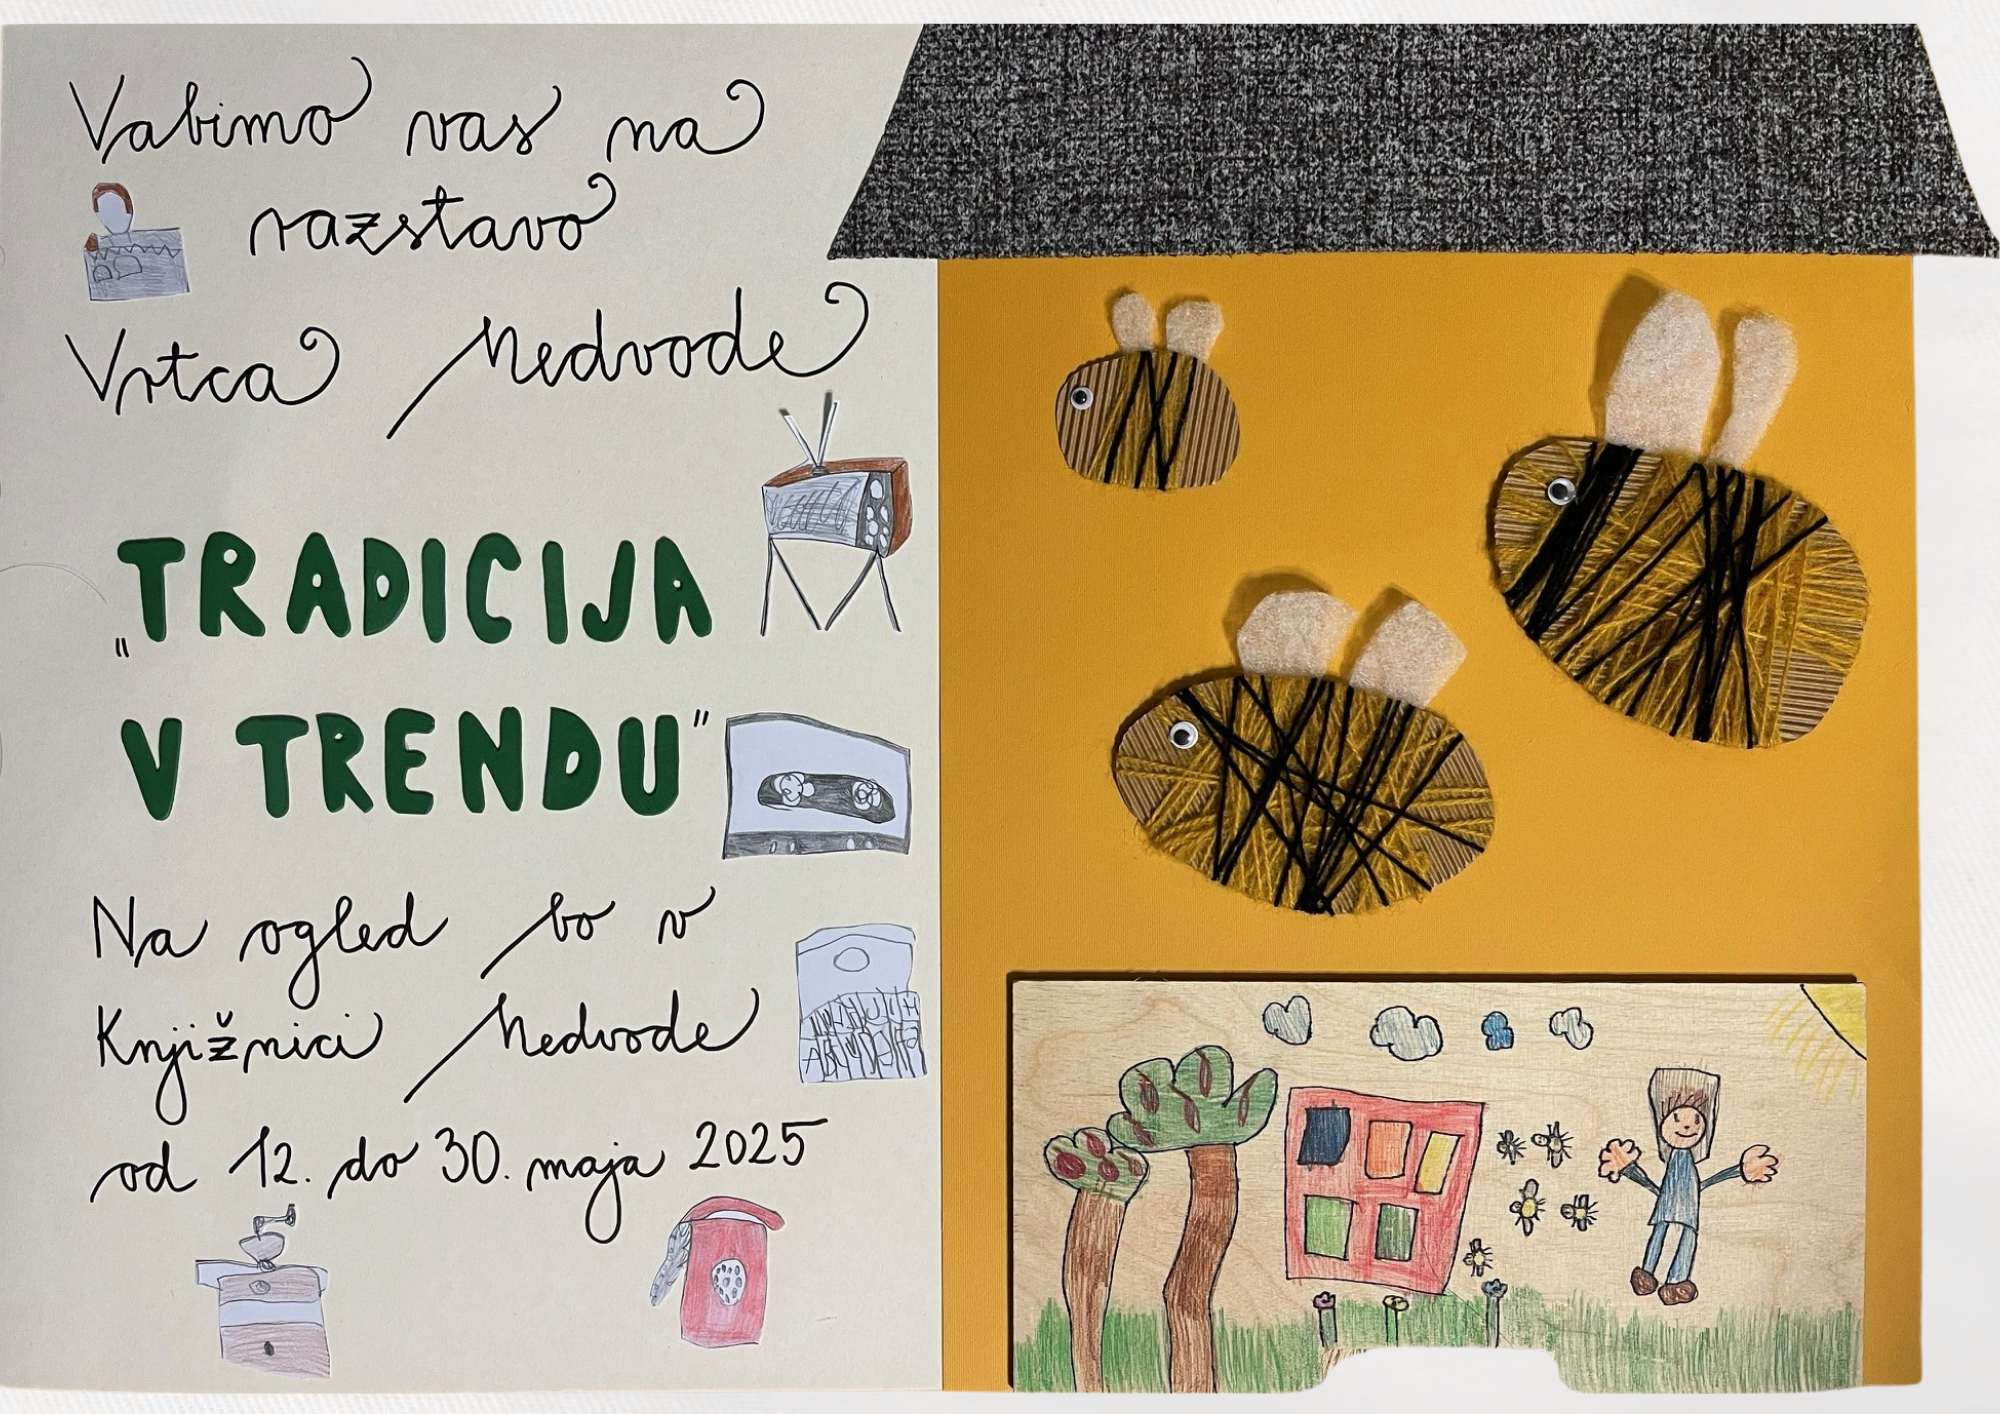 Vabimo vas na
razstavo
Vrtca Medvode
„TRADICIJA
V TRENDU"
Na ogled bo v
Knjižnici Medvode
od 12. do 30. maja 2025